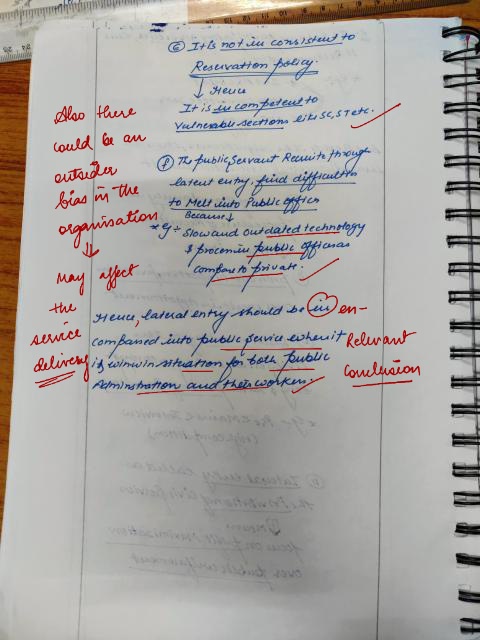 © It is not in consistent to
Reservation policy.
↓ Hence
It is incompetent to
vulnerable sections like SC, ST etc.
Also there
could be an
outsider
bias in the
organisation
↓
May affect
the
service
delivery
The public servant Recruits through
latent entry, find difficulties
to Melt into Public offices
Because ↓
* eg ÷ Slow and outdated technology
& process in public offices as
compare to private.
Hence, lateral entry should be in en-
compassed into public service when it
is win win situation for both public
Adminstration and their workers.
Relevant
Conclusion